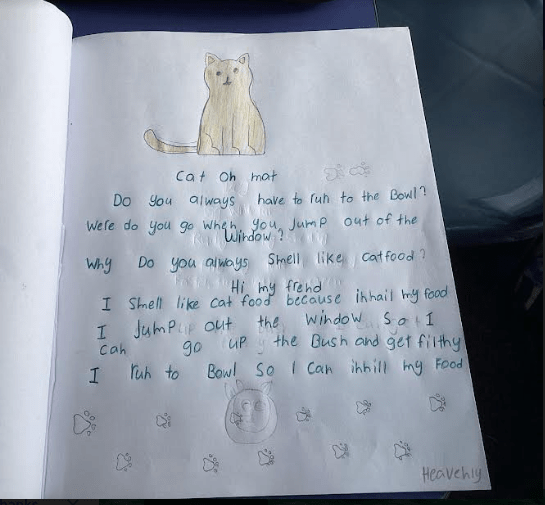 Cat on mat
Do you always have to run to the Bowl?
Were do you go when you Jump out of the
Window?
Why Do you always Smell like catfood?
Hi my frend
I Smell like cat food because inhail my food
I Jump out the Window So I
can go up the Bush and get filthy
I run to Bowl So I Can inhill my Food
Heavenly